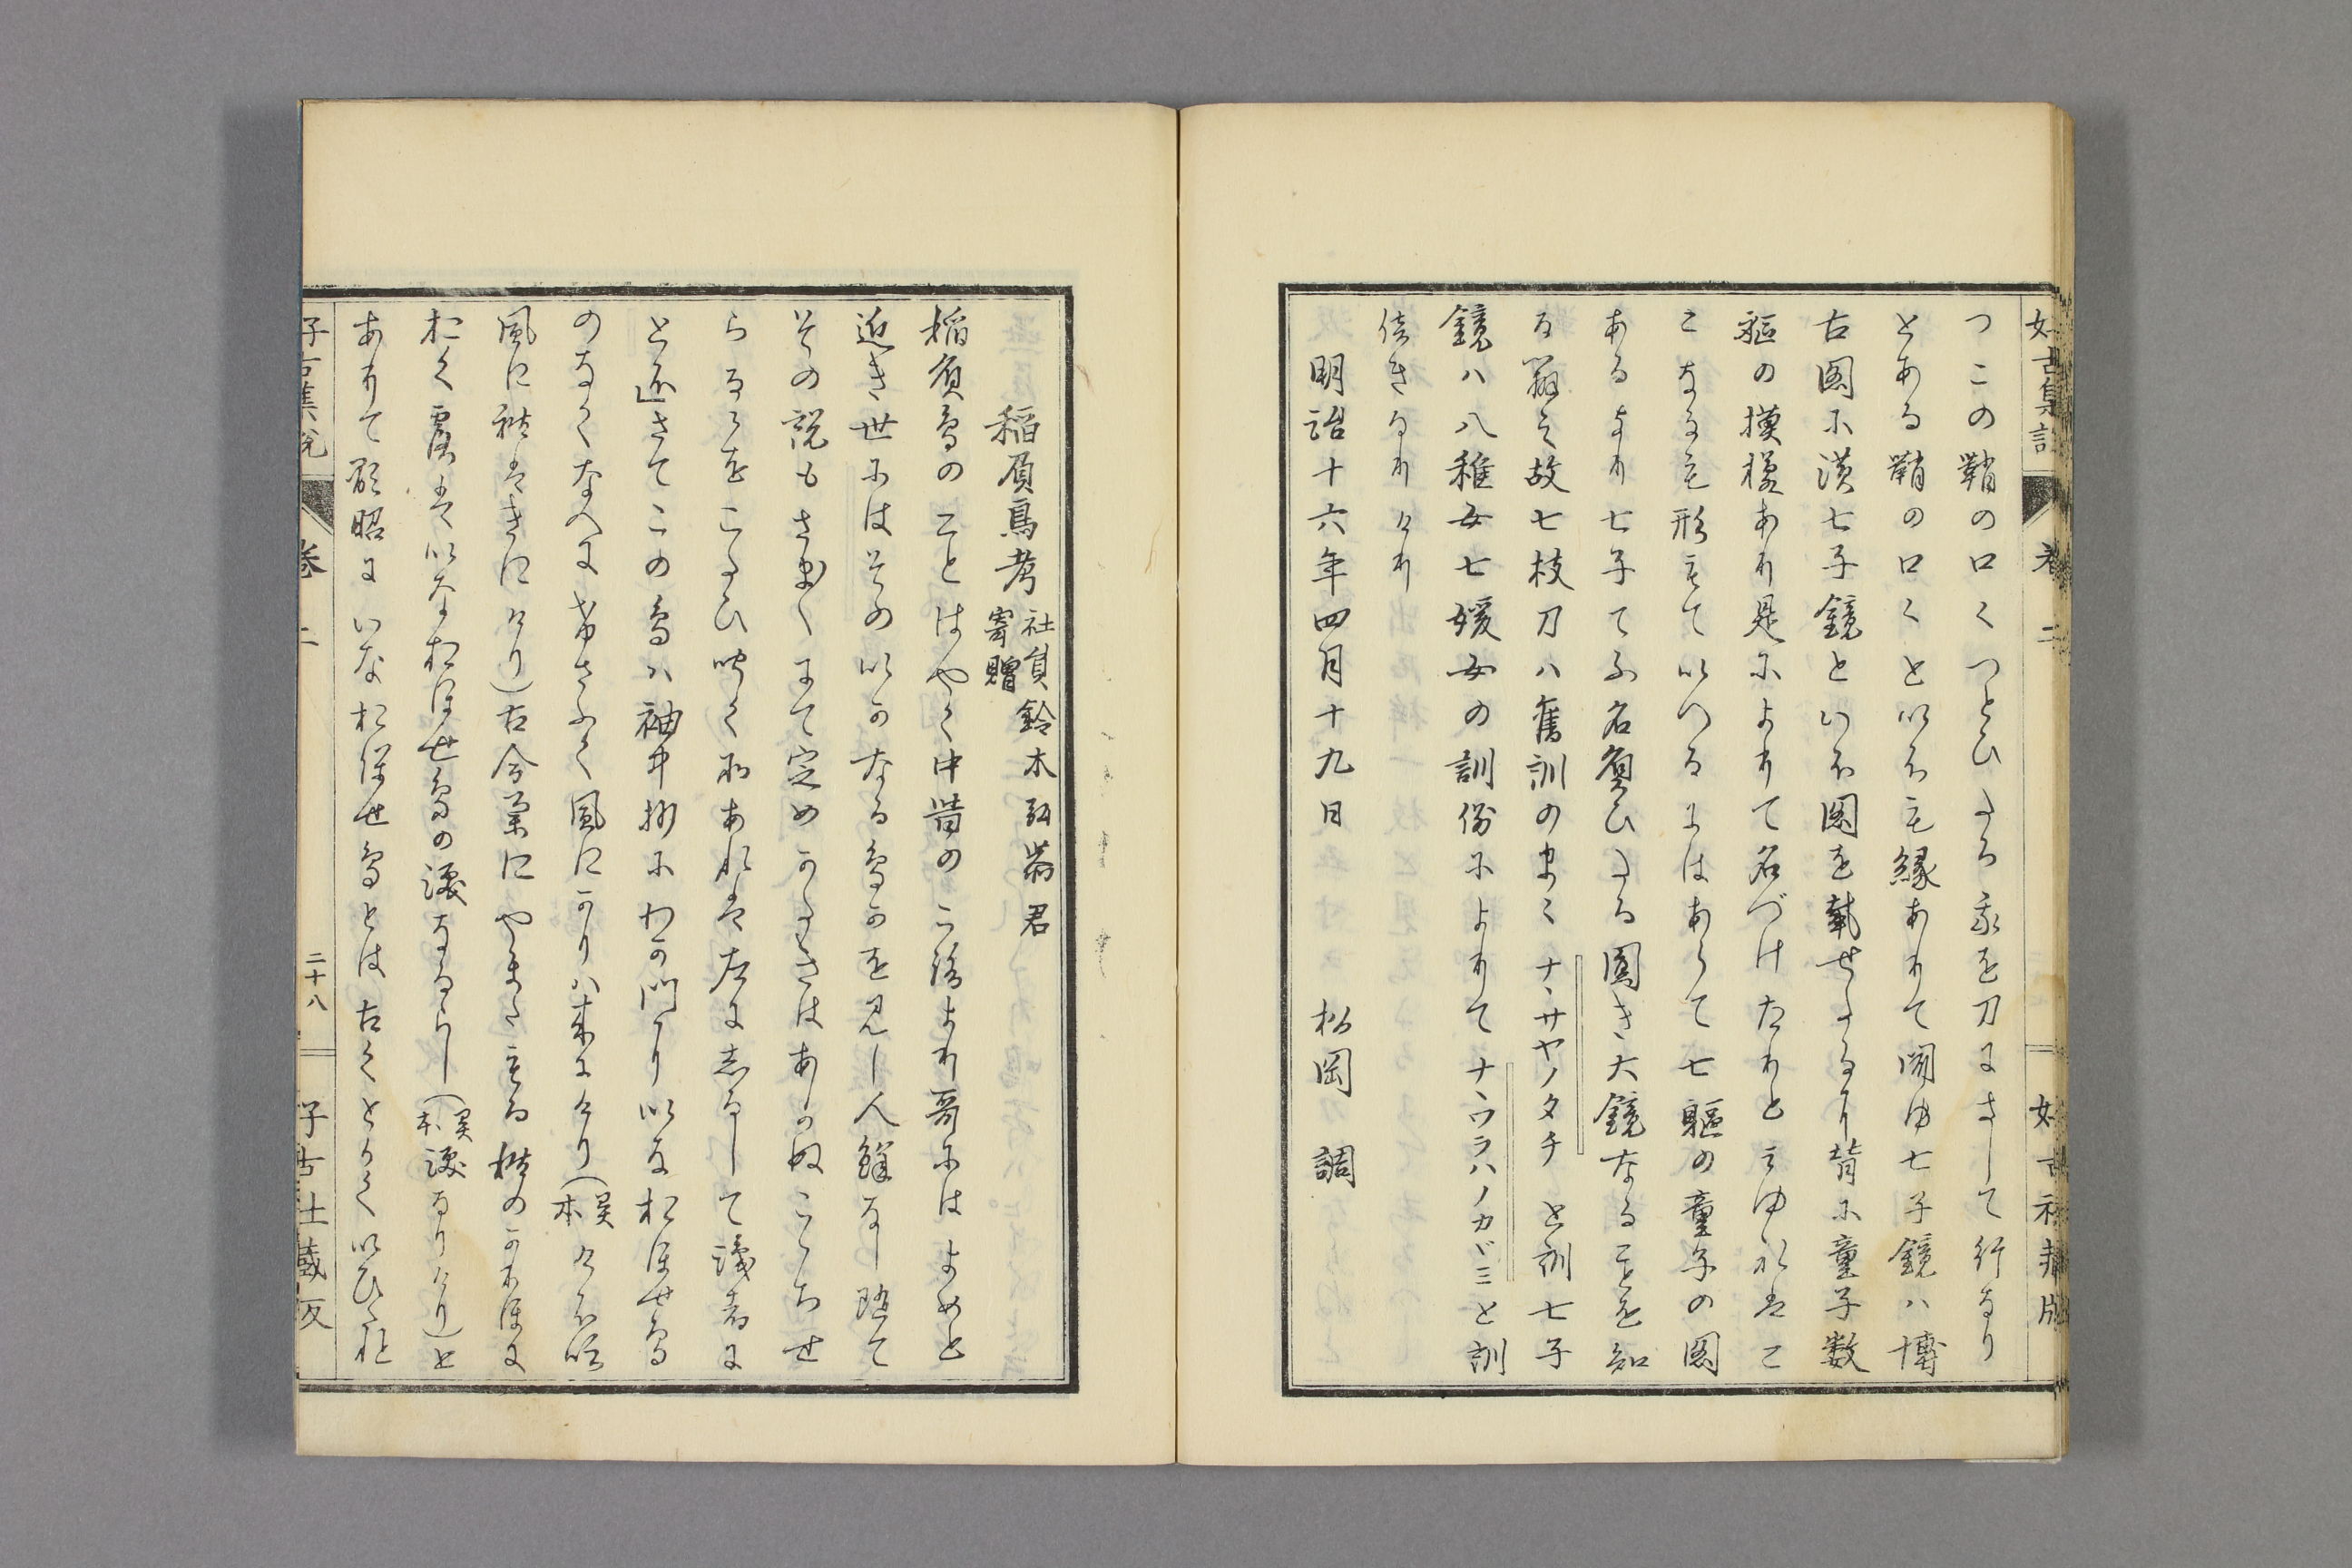 好古集説 卷二 好古社藏版
つこの鞘の口くつとひたる象を刀にさして行なり
とある鞘の口くといふも縁ありて聞ゆ七子鏡ハ博
古圖に漢七子鏡といふ圖を載せたるり背に童子数
軀の摸様あり是によりて名づけたりとみゆれはこ
こなるも形もていへるにはあらて七軀の童子の圖
あるより七子てふ名負ひたる圓き大鏡なることを知
る然らは故七枝刀ハ舊訓のまゝナヽサヤノタチと訓七子
鏡ハ八稚女七媛女の訓例によりてナヽツラハノカゞミと訓
侍きなりけり
明治十六年四月十九日 松岡 調
稲負鳥考 社員鈴木弘恭君
寄贈
稲負鳥のことはやく中昔のころより哥にはよめと
近き世にはその以かなる鳥かを見し人鮮なし随て
その説もさまくにて定めかたきはあかぬこゝちせ
らるゝをこたひ聊く所あれは左に志るして識者に
と近さてこの鳥ハ袖中抄にわか門り以な於ほせ鳥
のなくなへにけさふく風にかりハ来にけり(異
本けふ吹
風に
古今集にやまたもる秋のかりほに
おく露は以なおほせ鳥の涙なるらし(異
本涙なりけり)と
ありて顕昭にいなおほせ鳥とは古くとりく以ひ
好古集説 卷二 二十八 好古社藏版